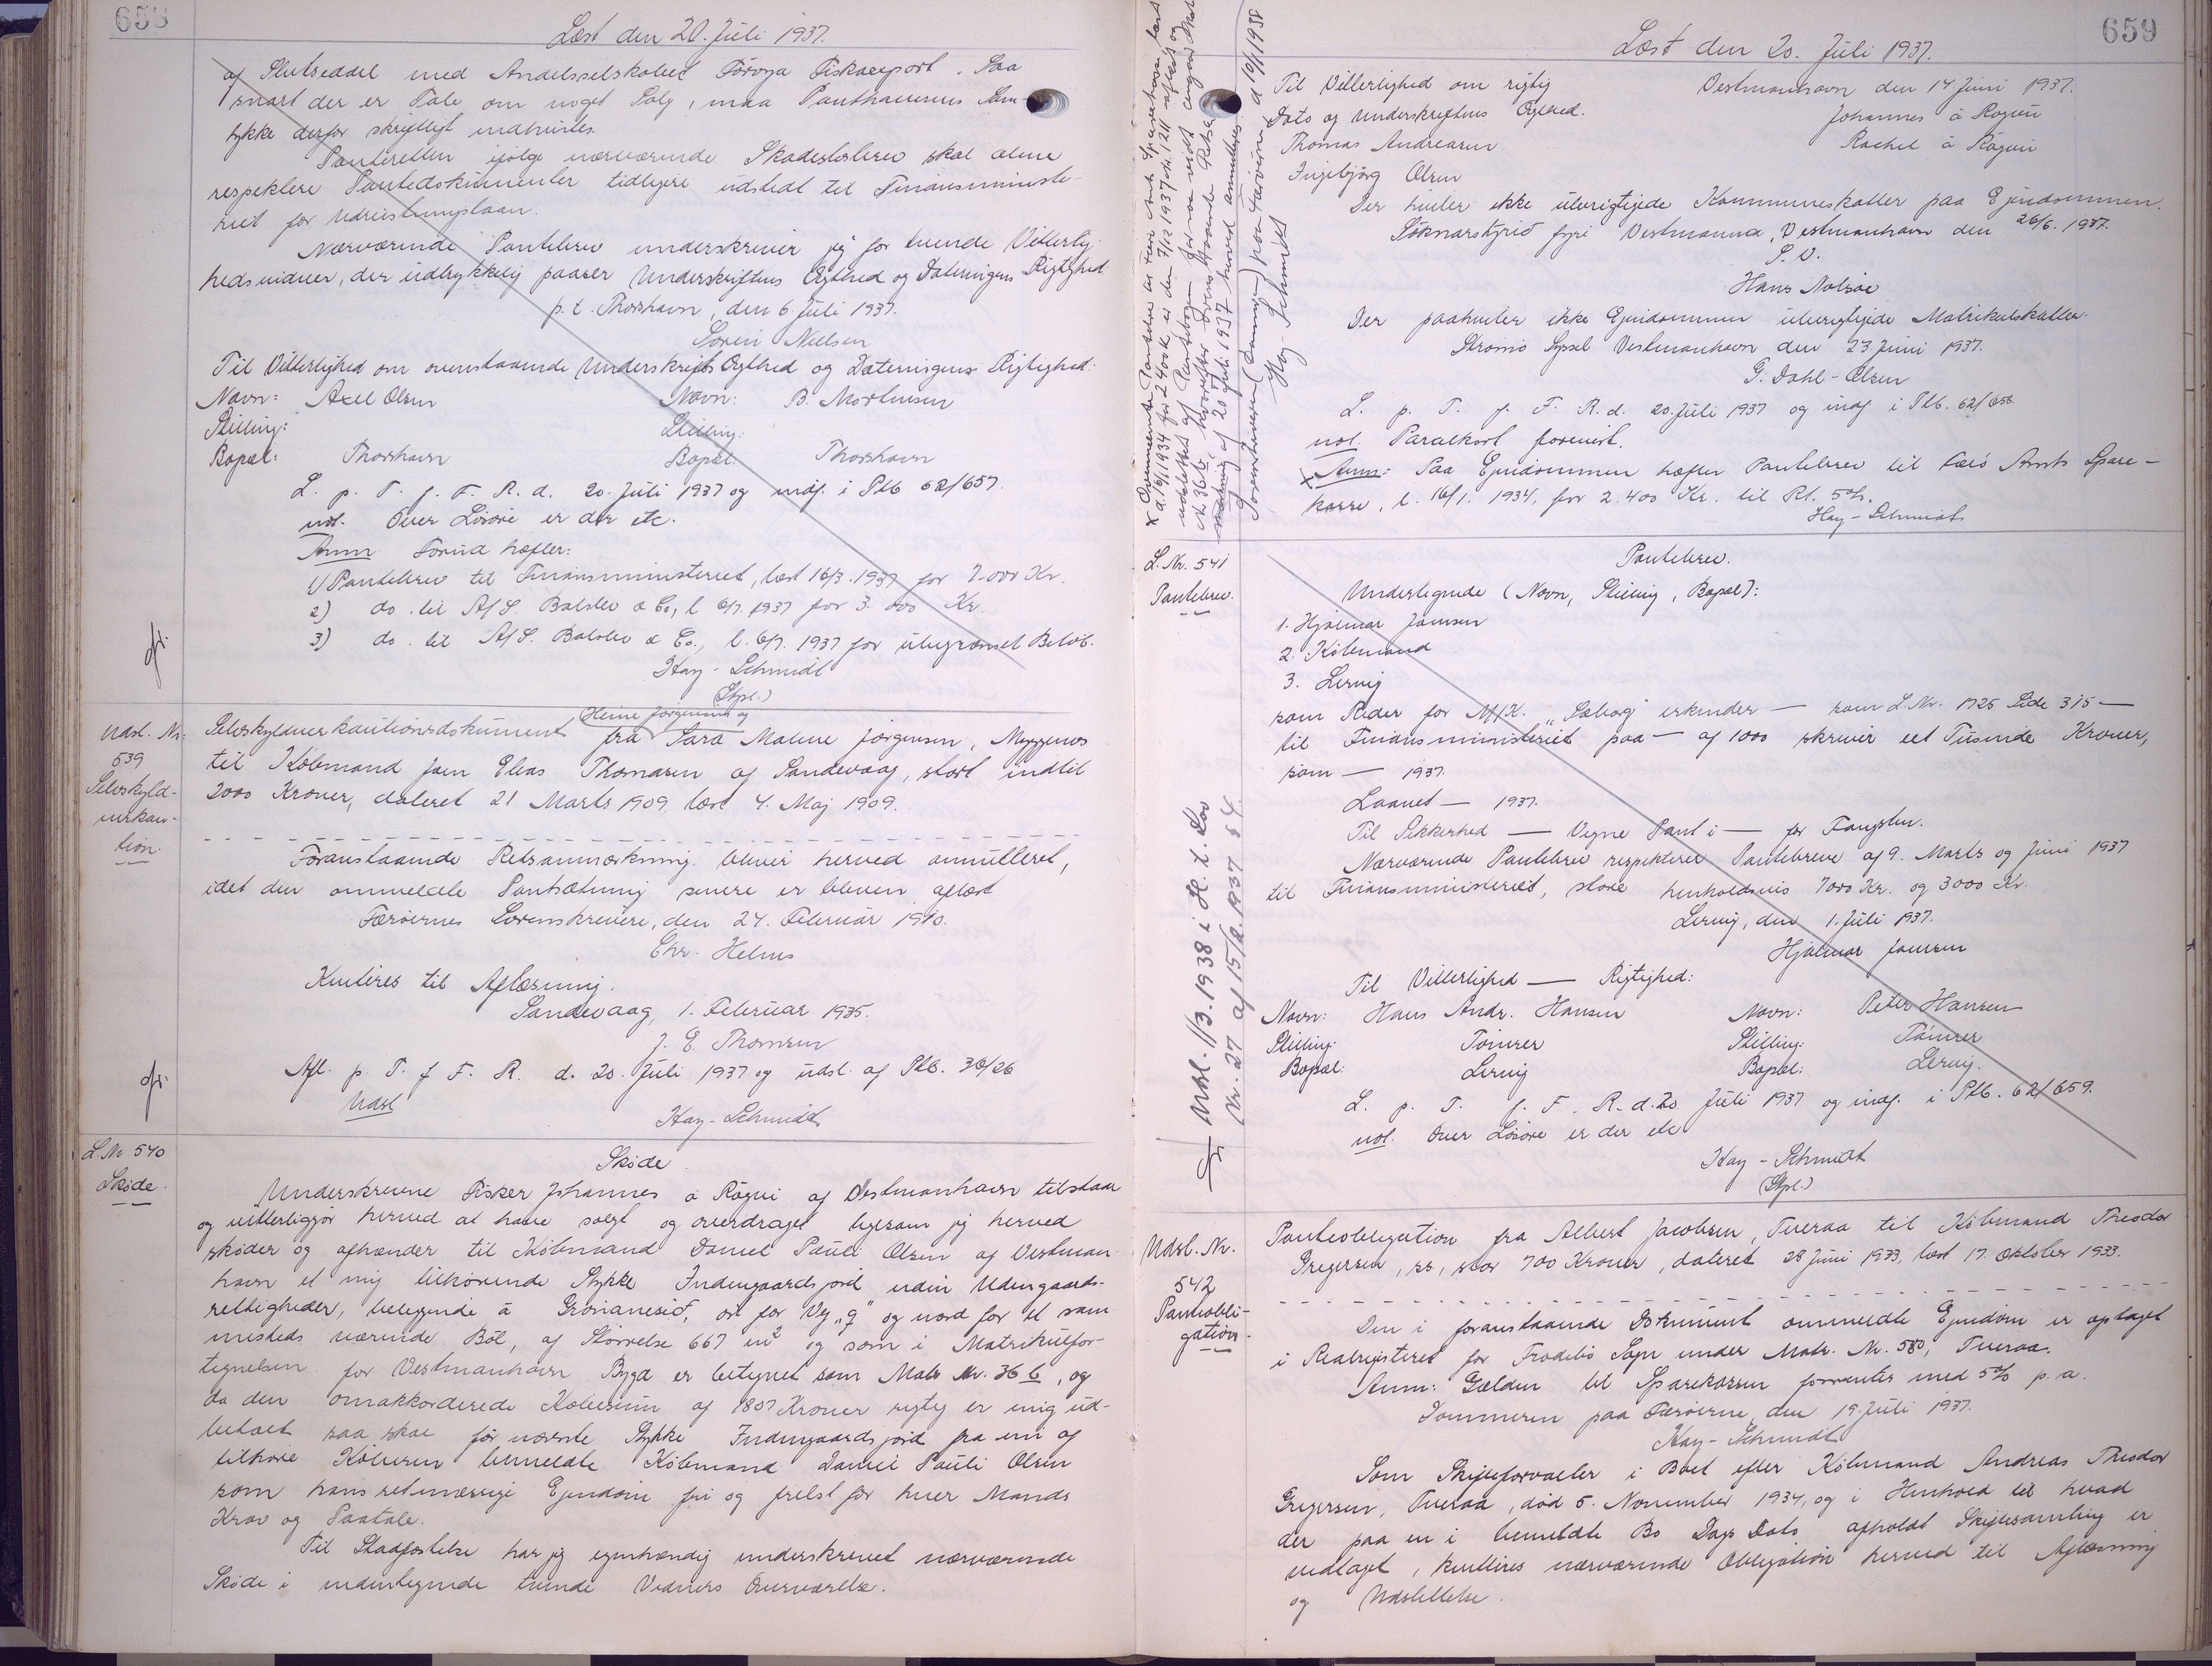 658
Læst den 20. Juli 1937.
af Slutseddel med Andelsselskabet Föroya Fiskaexport. Saa
snart der er Tale om noget Salg, maa Panthaverens Sam-
tykke derfor skriftligt indhentes.
Panteretten ifølge nærværende Skadesløsbrev skal alene
respektere Pantedokumenter tidligere udstedt til Finansministe-
riet for Udrustningslaan.
Nærværende Pantebrev underskriver jeg for tvende Vitterlig-
hedsvidner, der udtrykkelig paaser Underskriftens Ægthed og Dateringens Rigtighed.
p.t. Thorshavn, den 6 Juli 1937.
Sören Nielsen
Til Vitterlighed om ovenstaaende Underskrifts Ægthed og Dateringens Rigtighed:
Navn: Axel Olsen Navn: B. Mortensen
Stilling: Stilling:
Bopæl: Thorshavn Bopæl: Thorshavn
L. p. T. f. F. R. d. 20. Juli 1937 og indf. i Ptb 62/657.
not. Over Løsøre er der etc.
Anm Forud hæfter:
1) Pantebrev til Finansministeriet, læst 16/3. 1937 for 7.000 Kr.
2) do. til A/S. Balslev & Co., l. 6/7. 1937 for 3.000 Kr.
3) do. til A/S. Balslev & Co., l. 6/7. 1937 for ubegrænset Beløb.
Kay-Schmidt
(Stpl.)
Udsl. Nr.
539
Selvskyld-
nerkau-
tion.
Selvskyldnerkautionsdokument fra Heine Jørgensen og Sara Malene Jørgensen, Myggenæs
til Købmand Joen Elias Thomasen af Sandevaag, stort indtil
2000 Kroner, dateret 21 Marts 1909, læst 4. Maj 1909.
Foranstaaende Retsanmærkning bliver herved annulleret,
idet den ommeldte Pantsætning senere er bleven aflæst
Færøernes Sorenskriveri, den 24. Februar 1910.
Chr. Helms
Kvitteres til Aflæsning.
Sandevaag, 1. Februar 1935.
J. E. Thomsen
Afl. p. T. f. F. R. d. 20. Juli 1937 og udsl. af Ptb. 36/26
Udsl
Kay-Schmidt
L. Nr. 540
Skøde.
Skøde.
Underskrevne Fisker Johannes á Røgni af Vestmanhavn tilstaar
og vitterliggør herved at have solgt og overdraget ligesom jeg herved
skøder og afhænder til Købmand Daniel Pauli Olsen af Vestman-
havn et mig tilhørende Stykke Indengaardsjord uden Udengaards-
rettigheder, beliggende á Grønanesið, øst for Vej „g" og nord for et sam-
mesteds værende Ból, af Størrelse 667 m² og som i Matrikulfor-
tegnelsen for Vestmanhavn Bygd er betegnet som Matr Nr. 36 b, og
da den omakkorderede Købesum af 1807 Kroner rigtig er mig ud-
betalt saa skal førnævnte Stykke Indengaardsjord fra nu af
tilhøre Køberen bemeldte Købmand Daniel Pauli Olsen
som hans retmæssige Ejendom fri og frelst for hver Mands
Krav og Paatale.
Til Stadfæstelse har jeg egenhændig underskrevet nærværende
Skøde i undertegnede tvende Vidners Overværelse.
659
Læst den 20. Juli 1937.
Til Vitterlighed om rigtig Vestmanhavn den 14 Juni 1937.
Dato og Underskriftens Ægthed. Johannes á Røgni
Thomas Andreasen Rachel á Røgni
Ingebjörg Olsen
Der hviler ikke uberigtigede Kommuneskatter paa Ejendommen.
Sóknarstýrið fyri Vestmanna, Vestmanhavn den 26/6. 1937.
P. V.
Hans Nolsøe
Der paahviler ikke Ejendommen uberigtigede Matrikulskatter.
Strømø Syssel Vestmanhavn den 23 Juni 1937.
G. Dahl-Olsen
L. p. T. f. F. R. d. 20. Juli 1937 og indf. i Ptb. 62/658.
not. Parcelkort forevist.
x Anm: Paa Ejendommen hæfter Pantebrev til Færø Amts Spare-
kasse, l. 16/1. 1934, for 2.400 Kr. til Rt. 5%.
Kay-Schmidt
L. Nr. 541
Pantebrev.
Pantebrev.
Undertegnede (Navn, Stilling, Bopæl):
1. Hjalmar Jansen
2. Købmand
3. Lervig
som Reder for M/K. „Søborg" erkender — som L. Nr. 1725 Side 315 —
til Finansministeriet paa — af 1000 skriver eet Tusinde Kroner,
som — 1937.
Laanet — 1937.
Til Sikkerhed — Vegne Pant i — for Fangsten.
Nærværende Pantebrev respekterer Pantebreve af 9. Marts og Juni 1937
til Finansministeriet, store henholdsvis 7000 Kr. og 3000 Kr.
Lervig, den 1. Juli 1937.
Hjalmar Jansen
Til Vitterlighed — Rigtighed:
Navn: Hans Andr. Hansen Navn: Peter Hansen
Stilling: Tømrer Stilling: Tømrer
Bopæl: Lervig Bopæl: Lervig.
L. p. T. f. F. R. d. 20. Juli 1937 og indf. i Ptb. 62/659.
not. Over Løsøre er der etc
Kay-Schmidt
(Stpl.)
Udsl. 1/3. 1938 i H. t. Lov
Nr. 27 af 15/2. 1937 § 4.
Udsl. Nr.
542
Panteobli-
gation.
Panteobligation fra Albert Jacobsen, Tveraa til Købmand Theodor
Gregersen, ss, stor 700 Kroner, dateret 28 Juni 1933, læst 17. Oktober 1933.
Den i foranstaaende Dokument ommeldte Ejendom er optaget
i Realregistret for Frodebø Sogn under Matr. Nr. 580, Tveraa.
Anm: Gælden til Sparekassen forrentes med 5% p. a.
Dommeren paa Færøerne, den 19. Juli 1937.
Kay-Schmidt
Som Skifteforvalter i Boet efter Købmand Andreas Theodor
Gregersen, Tveraa, død 5. November 1934, og i Henhold til hvad
der paa en i bemeldte Bo Dags Dato afholdt Skiftesamling er
vedtaget, kvitteres nærværende Obligation herved til Aflæsning
og Udslettelse.